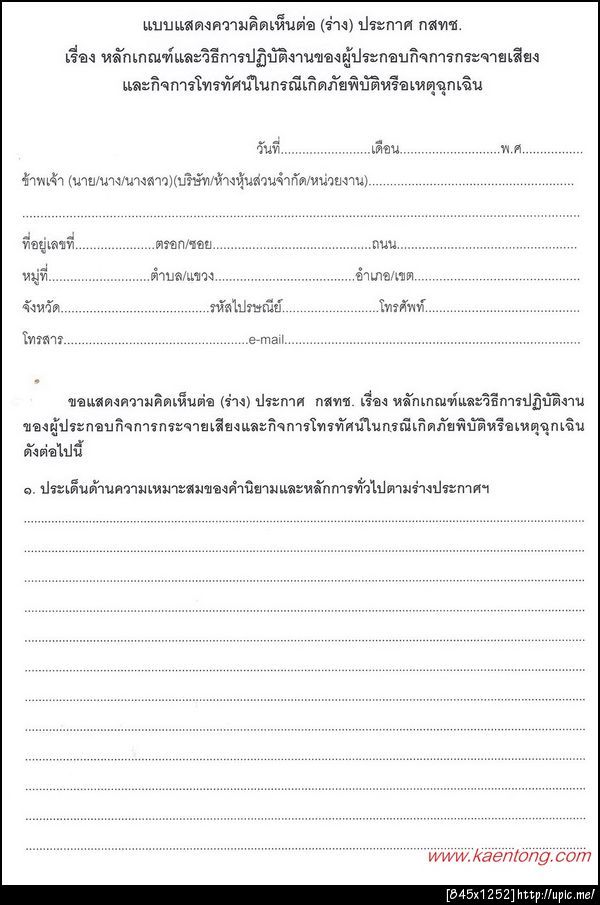 แบบแสดงความคิดเห็นต่อ (ร่าง) ประกาศ กสทช.
เรื่อง หลักเกณฑ์และวิธีการปฏิบัติงานของผู้ประกอบกิจการกระจายเสียง
และกิจการโทรทัศน์ในกรณีเกิดภัยพิบัติหรือเหตุฉุกเฉิน
วันที่..........................เดือน.............................พ.ศ..................
ข้าพเจ้า (นาย/นาง/นางสาว)(บริษัท/ห้างหุ้นส่วนจำกัด/หน่วยงาน)............................................................
ที่อยู่เลขที่.......................ตรอก/ซอย..............................................ถนน.....................................................
หมู่ที่..............................ตำบล/แขวง.........................................อำเภอ/เขต................................................
จังหวัด...........................................รหัสไปรษณีย์............................โทรศัพท์.............................................
โทรสาร......................................................e-mail......................................................................................
ขอแสดงความคิดเห็นต่อ (ร่าง) ประกาศ กสทช. เรื่อง หลักเกณฑ์และวิธีการปฏิบัติงาน
ของผู้ประกอบกิจการกระจายเสียงและกิจการโทรทัศน์ในกรณีเกิดภัยพิบัติหรือเหตุฉุกเฉิน
ดังต่อไปนี้
๑. ประเด็นด้านความเหมาะสมของคำนิยามและหลักการทั่วไปตามร่างประกาศฯ
www.kaentong.com
[845x1252]http://upic.me/